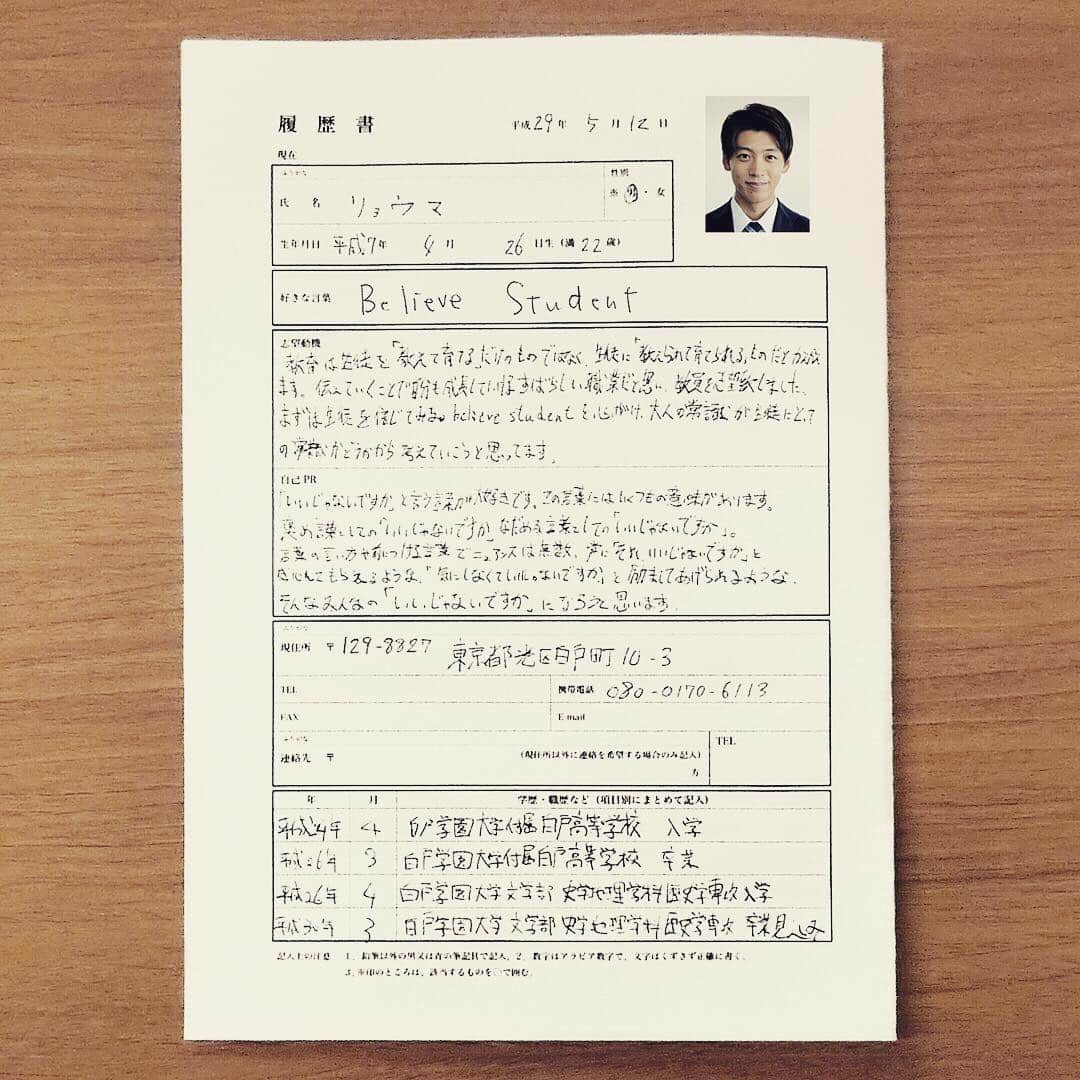 履歴書 平成29年 5月12日
現在
ふりがな 性別
氏名 リョウマ ※男・女
生年月日 平成7年 4月 26日生(満22歳)
好きな言葉 Believe Student
志望動機
教育は生徒を「教えて育てる」だけのものではなく、生徒に「教えられて育てられる」ものだと
ます。伝えていくことで自分も成長していけるすばらしい職業だと思い、教員を志望致しました。
まずは生徒を信じてみる。believe studentを心がけ、大人の常識が生徒にとって
の常識かどうかから考えていこうと思ってます。
自己PR
「いいじゃないですか」と言う言葉が大好きです。この言葉にはいくつもの意味があります。
褒め言葉としての「いいじゃないですか」なだめる言葉としての「いいじゃないですか」。
言葉の言い方や 言葉でニュアンスは無数、常に「それ、いいじゃないですか」と
もらえるような、「気にしなくていいじゃないですか」と励ましてあげられるような、
そんなみんなの「いいじゃないですか」になろうと思います。
ふりがな
現住所 〒129-8827 東京都港区白戸町10-3
TEL 携帯電話 080-0170-6113
FAX E-mail
ふりがな TEL
連絡先 〒 (現住所以外に連絡を希望する場合のみ記入)
方
年 月 学歴・職歴など(項目別にまとめて記入)
平成24年 4 白戸学園大学付属白戸高等学校 入学
平成26年 3 白戸学園大学付属白戸高等学校 卒業
平成26年 4 白戸学園大学文学部 史学地理学科歴史学専攻入学
平成30年 3 白戸学園大学 文学部 史学地理学科歴史学専攻 卒業見込み
記入上の注意 1. 鉛筆以外の黒又は青の筆記具で記入。2. 数字はアラビア数字で、文字はくずさず正確に書く。
3. ※印のところは、該当するものを○で囲む。